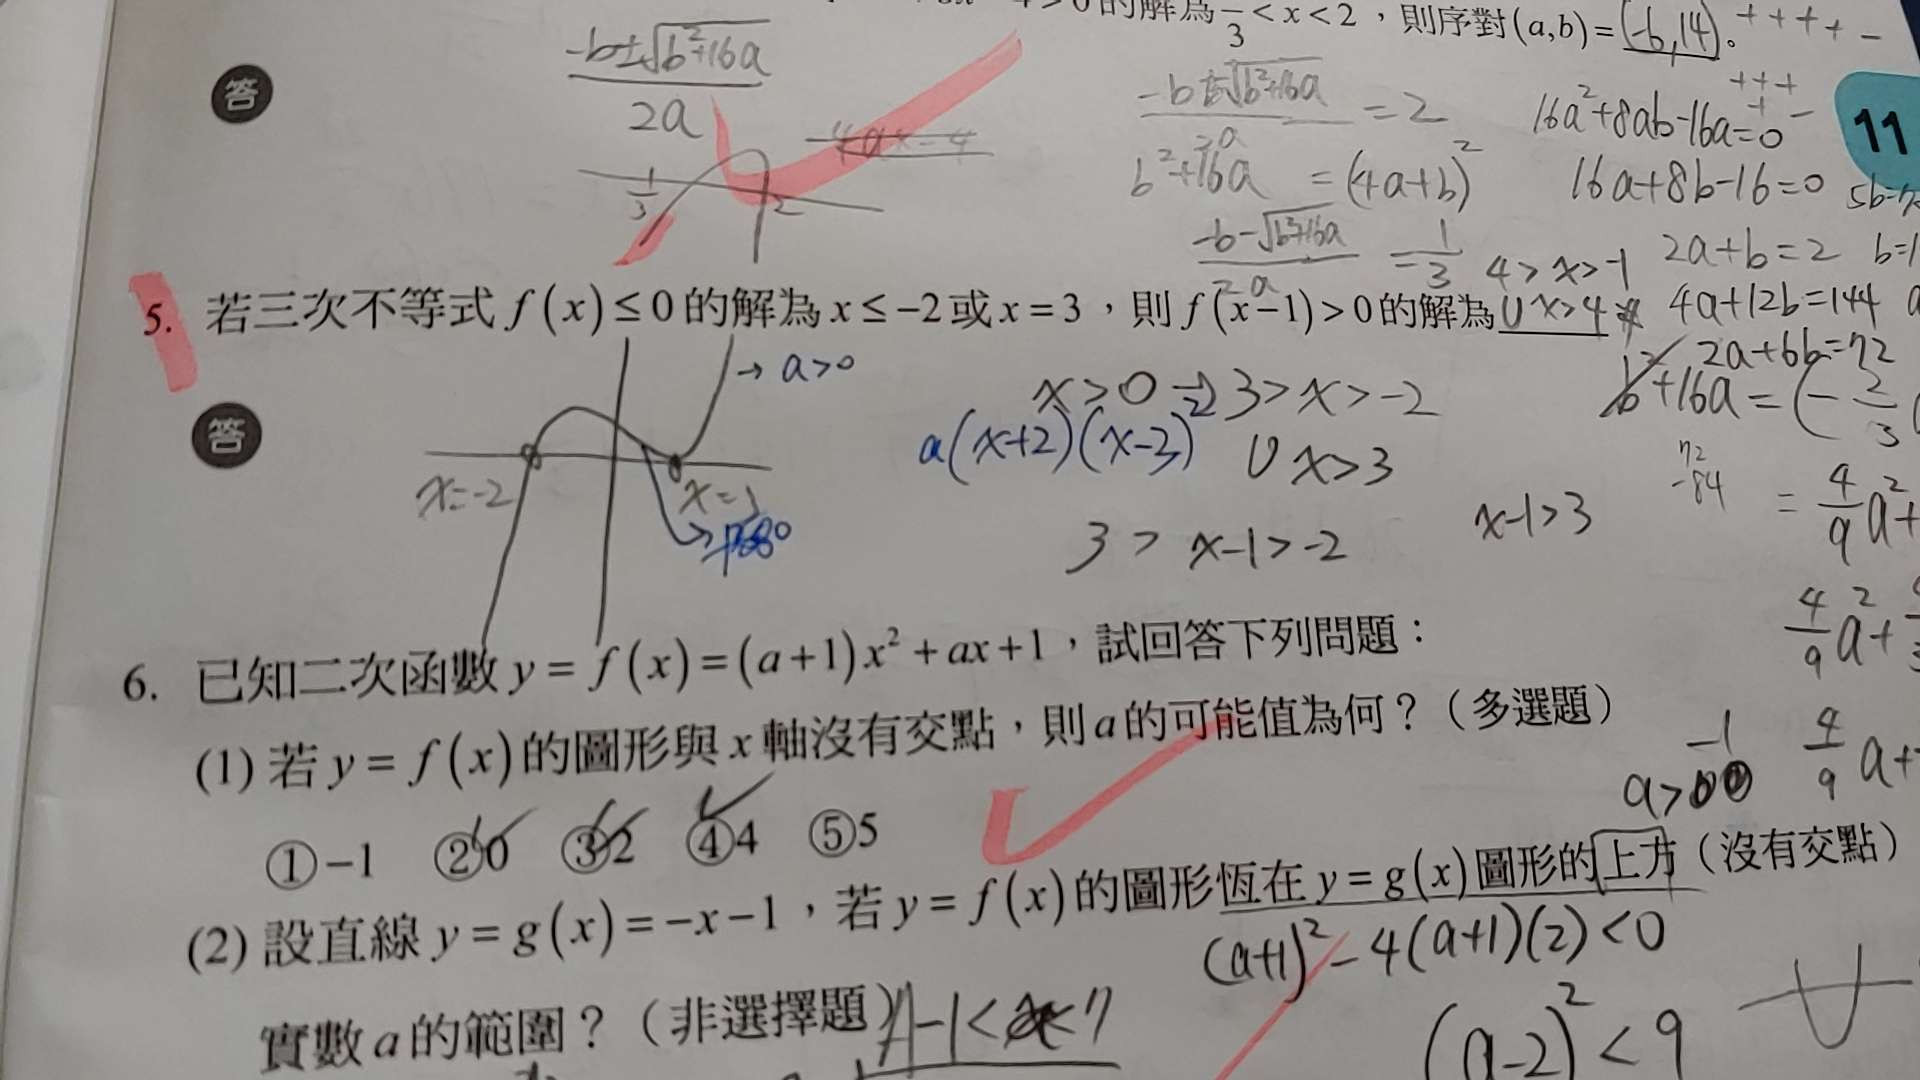 的解為 1/3 < x < 2，則序對(a,b) = (-6,14)。 + + + + -
答
-b±√(b²+16a) / 2a
-b±√(b²+16a) / 2a = 2
16a²+8ab-16a=0
+ + +
11
4ax-4
b²+16a = (4a+b)²
16a+8b-16=0
1/3
2
-b-√(b²+16a) / 2a = 1/3
4>x>-1
2a+b=2
5. 若三次不等式 f(x) ≤ 0 的解為 x ≤ -2 或 x = 3，則 f(x-1) > 0 的解為 ∪x>4
4a+12b=144
2a+6b=72
→ a>0
x>0 → 3>x>-2
b²+16a = (-2/3
答
a(x+2)(x-3)²
∪ x>3
72
-84
x=-2
x=3
= 4/9 a²+
3 > x-1 > -2
x-1>3
4/9 a²+
6. 已知二次函數 y = f(x) = (a+1)x² + ax + 1，試回答下列問題：
(1) 若 y = f(x) 的圖形與 x 軸沒有交點，則 a 的可能值為何？（多選題）
4/9 a+
①-1 ②0 ③2 ④4 ⑤5
(2) 設直線 y = g(x) = -x-1，若 y = f(x) 的圖形恆在 y = g(x) 圖形的上方（沒有交點）
(a+1)²-4(a+1)(2)<0
實數 a 的範圍？（非選擇題）
(a-2)²<9